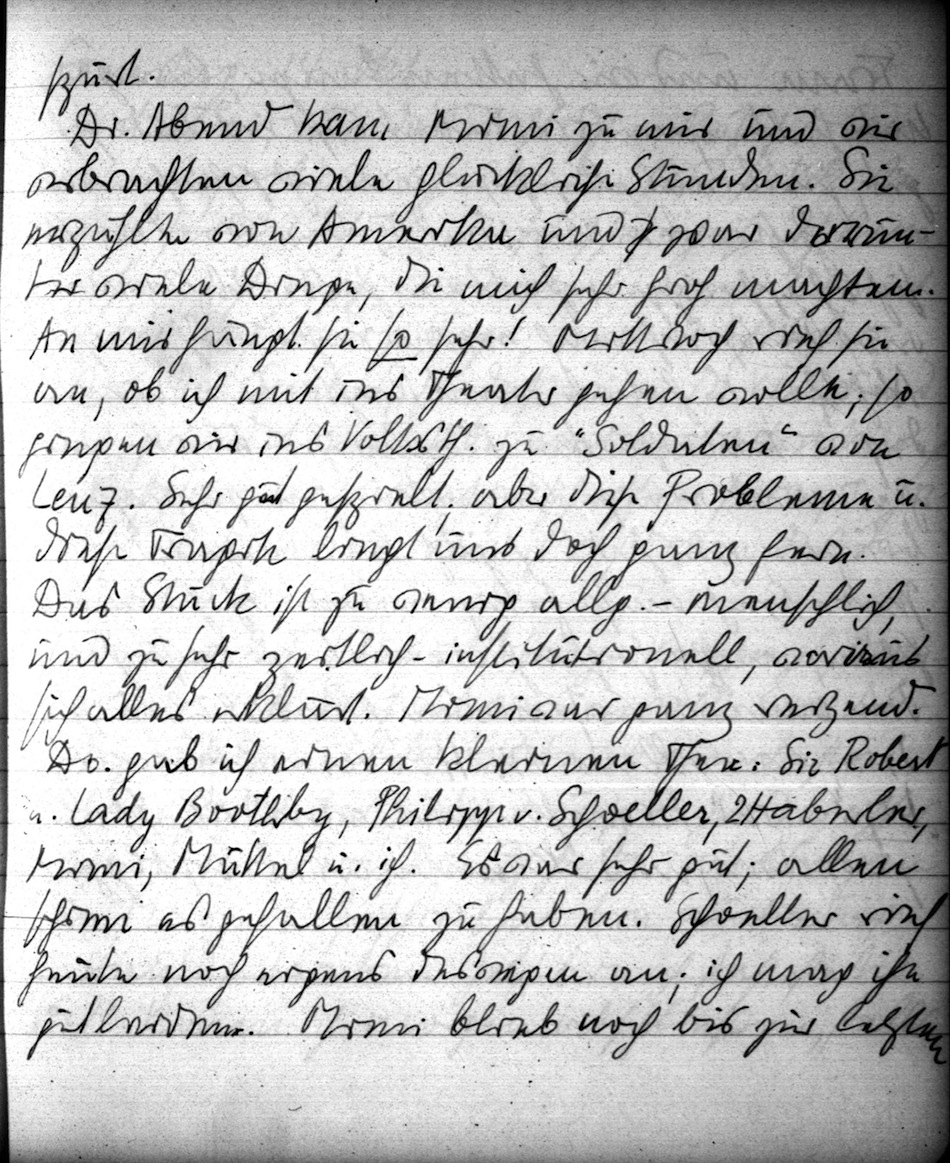 spürt.
Di. Abend kam Mimi zu mir und wir
verbrachten viele glückliche Stunden. Sie
erzählte von Amerika und zwar darun-
ter viele Dinge, die mich sehr froh machten.
An mir hängt sie so sehr! Mittwoch rief sie
an, ob ich mit ins Theater gehen wolle; so
gingen wir ins Volksth. zu "Soldaten" von
Lenz. Sehr gut gespielt, aber diese Probleme u.
diese Tragik liegt uns doch ganz fern.
Das Stück ist zu wenig allg.-menschlich,
und zu sehr zeitlich-institutionell, woraus
sich alles erklärt. Mimi war ganz reizend.
Do. gab ich einen kleinen Thee: Sir Robert
u. Lady Boothby, Philipp v. Schoeller, 2 Haberler,
Mimi, Muttel u. ich. Es war sehr gut; allen
schien es gefallen zu haben. Schoeller rief
heute noch eigens deswegen an; ich mag ihn
gut leiden. Mimi blieb noch bis zur letzten